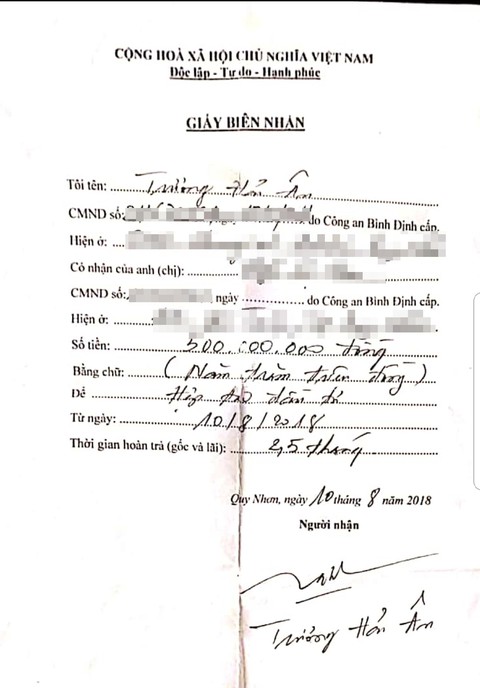 CỘNG HOÀ XÃ HỘI CHỦ NGHĨA VIỆT NAM
Độc lập - Tự do - Hạnh phúc
GIẤY BIÊN NHẬN
Tôi tên: Trương Hải Ân
CMND số: do Công an Bình Định cấp.
Hiện ở:
Có nhận của anh (chị):
CMND số: ngày do Công an Bình Định cấp.
Hiện ở:
Số tiền: 500.000.000 đồng
Bằng chữ: (Năm trăm triệu đồng)
Để đầu tư
Từ ngày: 10/8/2018
Thời gian hoàn trả (gốc và lãi): 2,5 tháng
Quy Nhơn, ngày 10 tháng 8 năm 2018
Người nhận
Trương Hải Ân